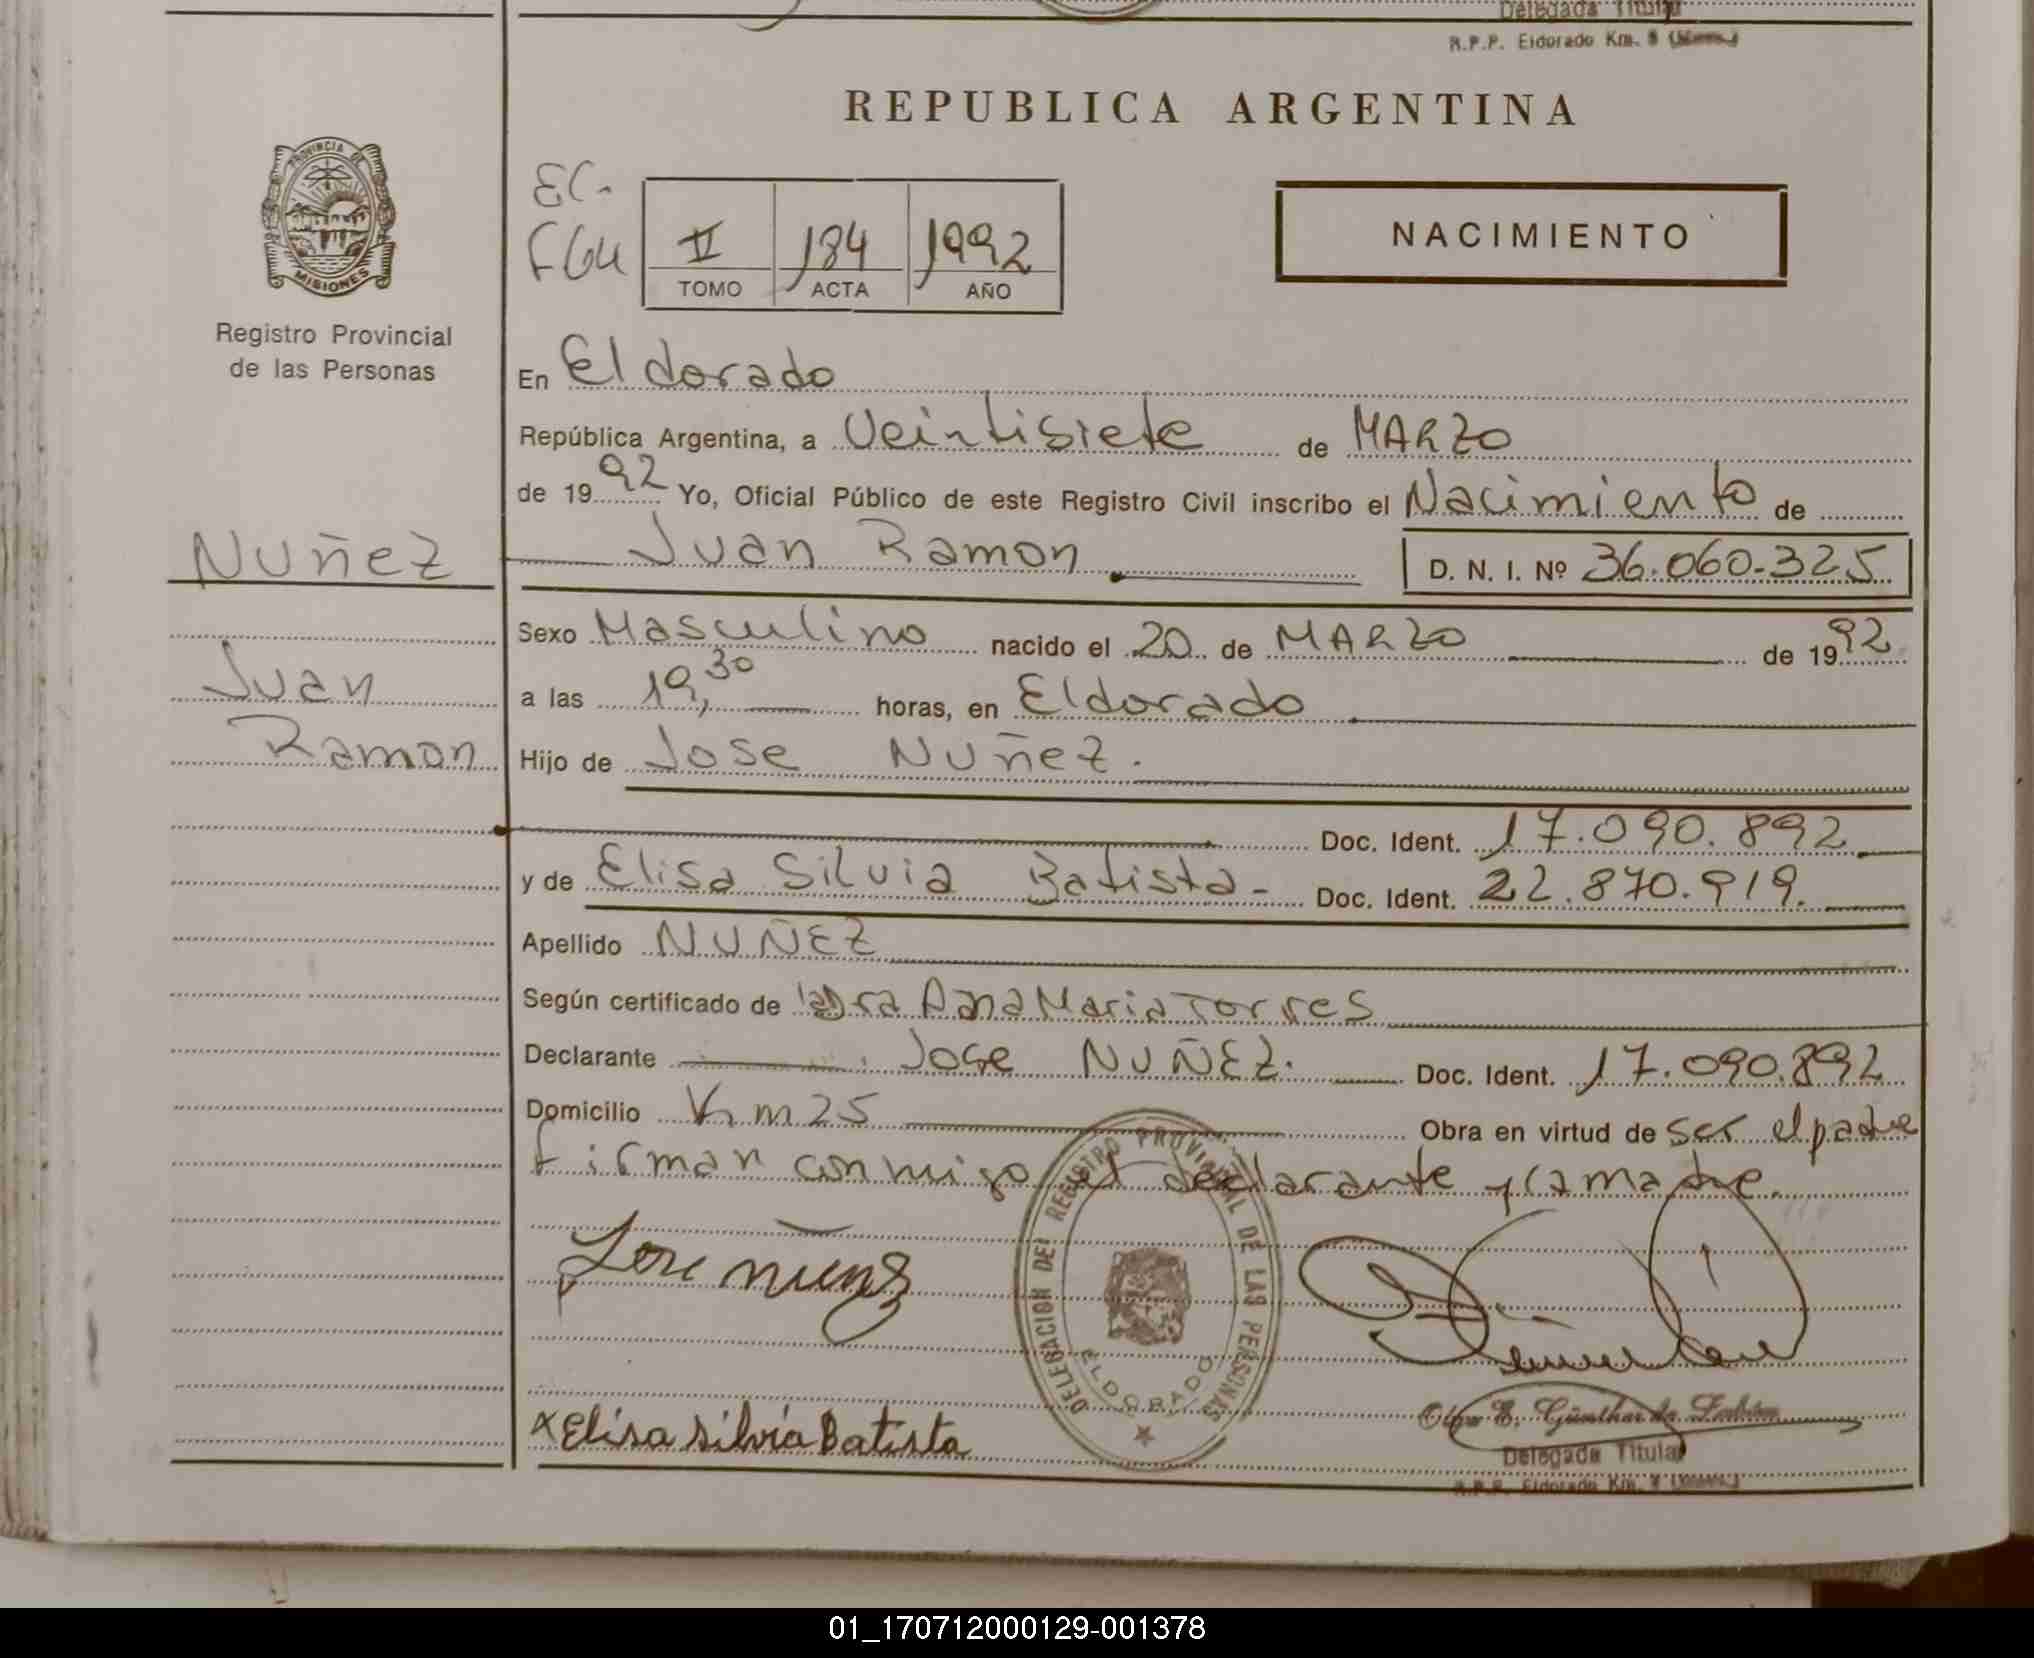 Delegada Titular
R.P.P. Eldorado Km. 9
REPUBLICA ARGENTINA
PROVINCIA DE MISIONES
Registro Provincial
de las Personas
EC.
II 184 1992
TOMO ACTA AÑO
NACIMIENTO
En Eldorado
República Argentina, a Veintisiete de MARZO
de 1992 Yo, Oficial Público de este Registro Civil inscribo el Nacimiento de
Nuñez
Juan Ramon D. N. I. Nº 36.060.325
Juan
Ramon
Sexo Masculino nacido el 20 de MARZO de 1992
a las 19,30 horas, en Eldorado
Hijo de Jose Nuñez.
Doc. Ident. 17.090.892
y de Elisa Silvia Batista- Doc. Ident. 22.870.919.
Apellido NUÑEZ
Según certificado de la Dra Ana Maria Torres
Declarante Jose NUÑEZ. Doc. Ident. 17.090.892
Domicilio Km 25 Obra en virtud de ser el padre
firman conmigo el declarante y la madre.
Jose nuñez
DELEGACION DEL REGISTRO PROVINCIAL DE LAS PERSONAS
ELDORADO
x Elisa silvia Batista
Olga E. Günther de
Delegada Titular
R.P.P. Eldorado Km. 9
01_170712000129-001378